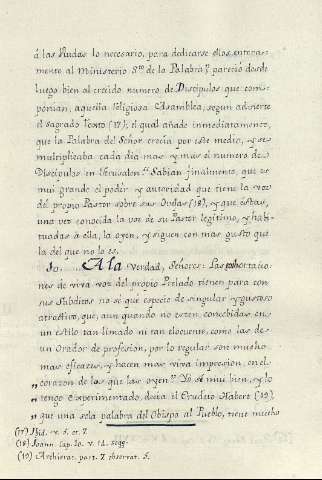 á las Viudas lo necesario, para dedicarse ellos entera-
mente al Ministerio Sto de la Palabra, pareció desde
luego bien al crecido numero de Discipulos que com-
ponian, aquella Religiosa Asamblea, segun advierte
el sagrado Texto (17); el qual añade inmediatamente,
que la Palabra del Señor crecia por este medio, y se
multiplicaba cada dia mas y mas el numero de
Discipulos en Jerusalen. Sabian finalmente, que es
mui grande el podér y autoridad que tiene la voz
del propio Pastor sobre sus Ovejas (18), y que estas,
una vez conocida la voz de su Pastor legitimo, y habi-
tuadas á ella, la oyen, y siguen con mas gusto que
la del que no lo es.
10. A la verdad, Señores: Las exhortacio-
nes de viva voz del propio Prelado tienen para con
sus Subditos no sé que especie de singular y gustoso
atractivo, que, aun quando no esten concebidas en
un estilo tan limado ni tan eloquente, como las de
un Orador de profesion, por lo regular son mucho
mas eficaces, y hacen mas viva impresion, en el
„ corazon de los que las oyen. Yo sé mui bien, y lo
„ tengo experimentado, decia el Erudito Habert (19),
„ que una sola palabra del Obispo al Pueblo, tiene mucho
(17) Ibid. v. 5. et 7.
(18) Joann. Cap. 10. v. 14. seqq.
(19) Archierat. part. 7 observat. 5.